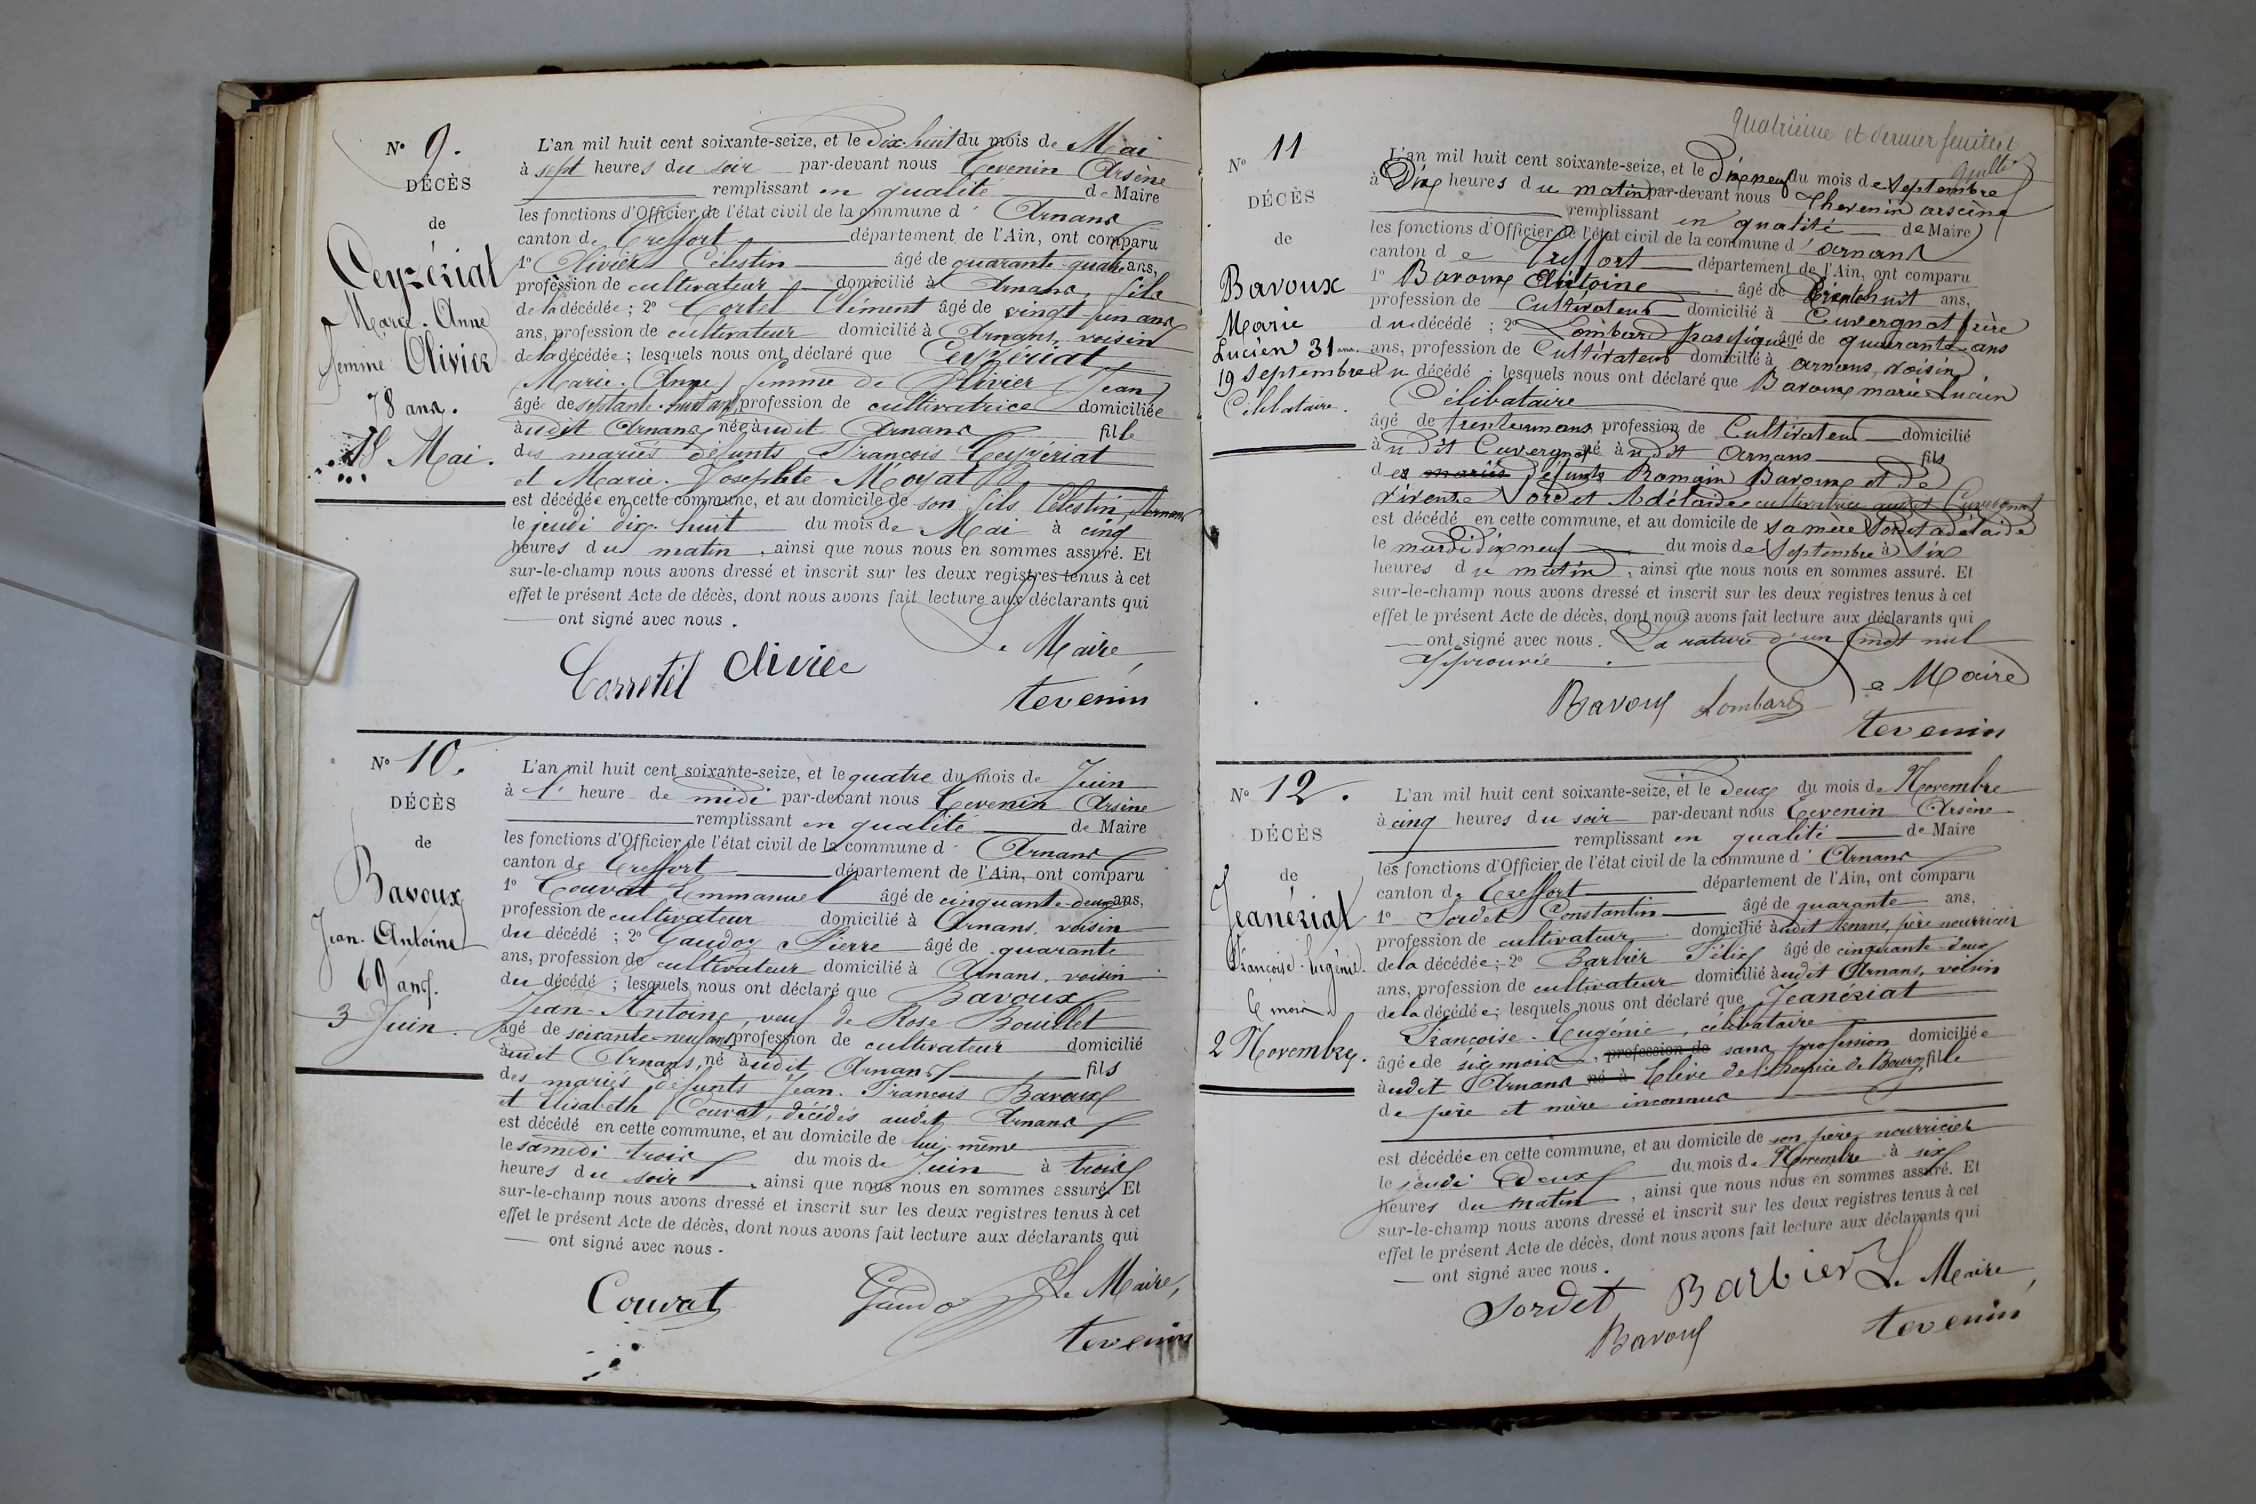 N° 9.
DÉCÈS
de
Ceyzériat
Marie-Anne
femme Olivier
78 ans.
18 Mai.
L'an mil huit cent soixante-seize, et le dix-huit du mois de Mai
à sept heures du soir par-devant nous Tevenin Arsène
remplissant en qualité de Maire
les fonctions d'Officier de l'état civil de la commune d'Arnans
canton de Treffort département de l'Ain, ont comparu
1° Olivier Célestin âgé de quarante-quatre ans,
profession de cultivateur domicilié à Arnans, fils
de la décédée ; 2° Cortel Clément âgé de vingt-un ans
ans, profession de cultivateur domicilié à Arnans, voisin
de la décédée ; lesquels nous ont déclaré que Ceyzériat
Marie-Anne femme de Olivier Jean
âgé de septante-huit ans, profession de cultivatrice domiciliée
audit Arnans, née audit Arnans fille
des mariés défunts François Ceyzériat
et Marie-Josephte Moyat
est décédée en cette commune, et au domicile de son fils Célestin, Arnans
le jeudi dix-huit du mois de Mai à cinq
heures du matin, ainsi que nous nous en sommes assuré. Et
sur-le-champ nous avons dressé et inscrit sur les deux registres tenus à cet
effet le présent Acte de décès, dont nous avons fait lecture aux déclarants qui
ont signé avec nous.
Le Maire,
Corretél Olivier
tevenin
N° 10.
DÉCÈS
de
Bavoux
Jean-Antoine
69 ans.
3 Juin.
L'an mil huit cent soixante-seize, et le quatre du mois de Juin
à 1 heure de midi par-devant nous Tevenin Arsène
remplissant en qualité de Maire
les fonctions d'Officier de l'état civil de la commune d'Arnans
canton de Treffort département de l'Ain, ont comparu
1° Couvat Emmanuel âgé de cinquante-deux ans,
profession de cultivateur domicilié à Arnans, voisin
du décédé ; 2° Gaudoz Pierre âgé de quarante
ans, profession de cultivateur domicilié à Arnans, voisin
du décédé ; lesquels nous ont déclaré que Bavoux
Jean-Antoine, veuf de Rose Bouillet
âgé de soixante-neuf ans, profession de cultivateur domicilié
audit Arnans, né audit Arnans fils
des mariés défunts Jean-François Bavoux
et Elisabeth Couvat, décédés audit Arnans
est décédé en cette commune, et au domicile de lui même
le samedi trois du mois de Juin à trois
heures du soir, ainsi que nous nous en sommes assuré. Et
sur-le-champ nous avons dressé et inscrit sur les deux registres tenus à cet
effet le présent Acte de décès, dont nous avons fait lecture aux déclarants qui
ont signé avec nous.
Couvat Gaudoz Le Maire,
tevenin
quatrième et dernier feuillet
N° 11
DÉCÈS
de
Bavoux
Marie
Lucien 31 ans
19 Septembre
Célibataire.
L'an mil huit cent soixante-seize, et le dix neuf du mois de septembre
à Dix heures du matin par-devant nous Thevenin arsène
remplissant en qualité de Maire
les fonctions d'Officier de l'état civil de la commune d'arnans
canton de Treffort département de l'Ain, ont comparu
1° Bavoux Antoine âgé de trente huit ans,
profession de Cultivateur domicilié à Cuvergnat frère
du décédé ; 2° Lombard âgé de quarante ans
ans, profession de Cultivateur domicilié à arnans, voisin
du décédé ; lesquels nous ont déclaré que Bavoux marie Lucien
Célibataire
âgé de trente un ans profession de Cultivateur domicilié
au dit Cuvergnat né au dit arnans fils
des mariés défunts Romain Bavoux et de
vivente Sordet Adélaïde cultivatrice audit Cuvergnat
est décédé en cette commune, et au domicile de sa mère Sordet adélaide
le mardi dix neuf du mois de septembre à six
heures du matin, ainsi que nous nous en sommes assuré. Et
sur-le-champ nous avons dressé et inscrit sur les deux registres tenus à cet
effet le présent Acte de décès, dont nous avons fait lecture aux déclarants qui
ont signé avec nous. La rature d'un mot nul
approuvée.
Le Maire
Bavoux Lombard
tevenin
N° 12.
DÉCÈS
de
Jeanériat
Françoise-Eugénie.
6 mois
2 Novembre.
L'an mil huit cent soixante-seize, et le deux du mois de Novembre
à cinq heures du soir par-devant nous Tevenin Arsène
remplissant en qualité de Maire
les fonctions d'Officier de l'état civil de la commune d'Arnans
canton de Treffort département de l'Ain, ont comparu
1° Sordet Constantin âgé de quarante ans,
profession de cultivateur domicilié audit Arnans, père nourricier
de la décédée ; 2° Barbier Félix âgé de cinquante-deux
ans, profession de cultivateur domicilié audit Arnans, voisin
de la décédée ; lesquels nous ont déclaré que Jeanériat
Françoise-Eugénie, célibataire
âgée de six mois, profession de sans profession domiciliée
audit Arnans né à Elève de l'hospice de Bourg, fille
de père et mère inconnus
est décédée en cette commune, et au domicile de son père nourricier
le jeudi deux du mois de Novembre à six
heures du matin, ainsi que nous nous en sommes assuré. Et
sur-le-champ nous avons dressé et inscrit sur les deux registres tenus à cet
effet le présent Acte de décès, dont nous avons fait lecture aux déclarants qui
ont signé avec nous.
Sordet Barbier Le Maire,
Bavoux tevenin